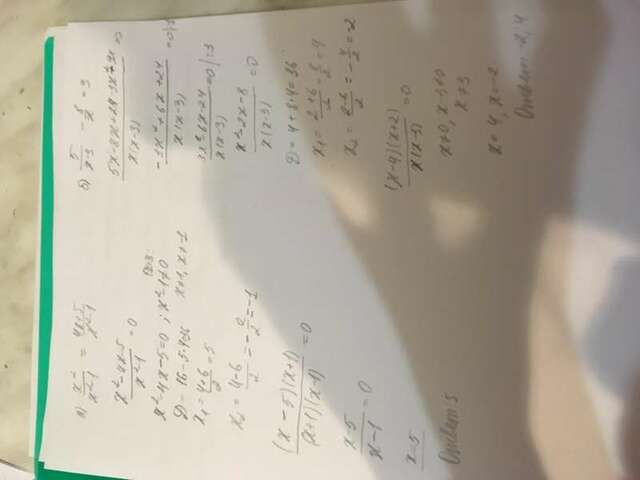 а) x²/(x²-1) = (4x+5)/(x²-1)
(x²-4x-5)/(x²-1) = 0
ОДЗ:
x²-4x-5=0 ; x²-1≠0
x≠1, x≠-1
x₁ = (4+6)/2 = 5
x₂ = (4-6)/2 = -2/2 = -1
((x-5)(x+1))/((x+1)(x-1)) = 0
(x-5)/(x-1) = 0
x=5
Ответ 5
б) 5/(x-3) - 8/x = 3
(-3x²+6x+24)/(x(x-3)) = 0
(3x²-6x-24)/(x(x-3)) = 0 /:3
(x²-2x-8)/(x(x-3)) = 0
D = 4+8·4 = 36
x₁ = (2+6)/2 = 8/2 = 4
x₂ = (2-6)/2 = -4/2 = -2
((x-4)(x+2))/(x(x-3)) = 0
x≠0, x-3≠0
x≠3
x=4, x=-2
Ответ -2, 4